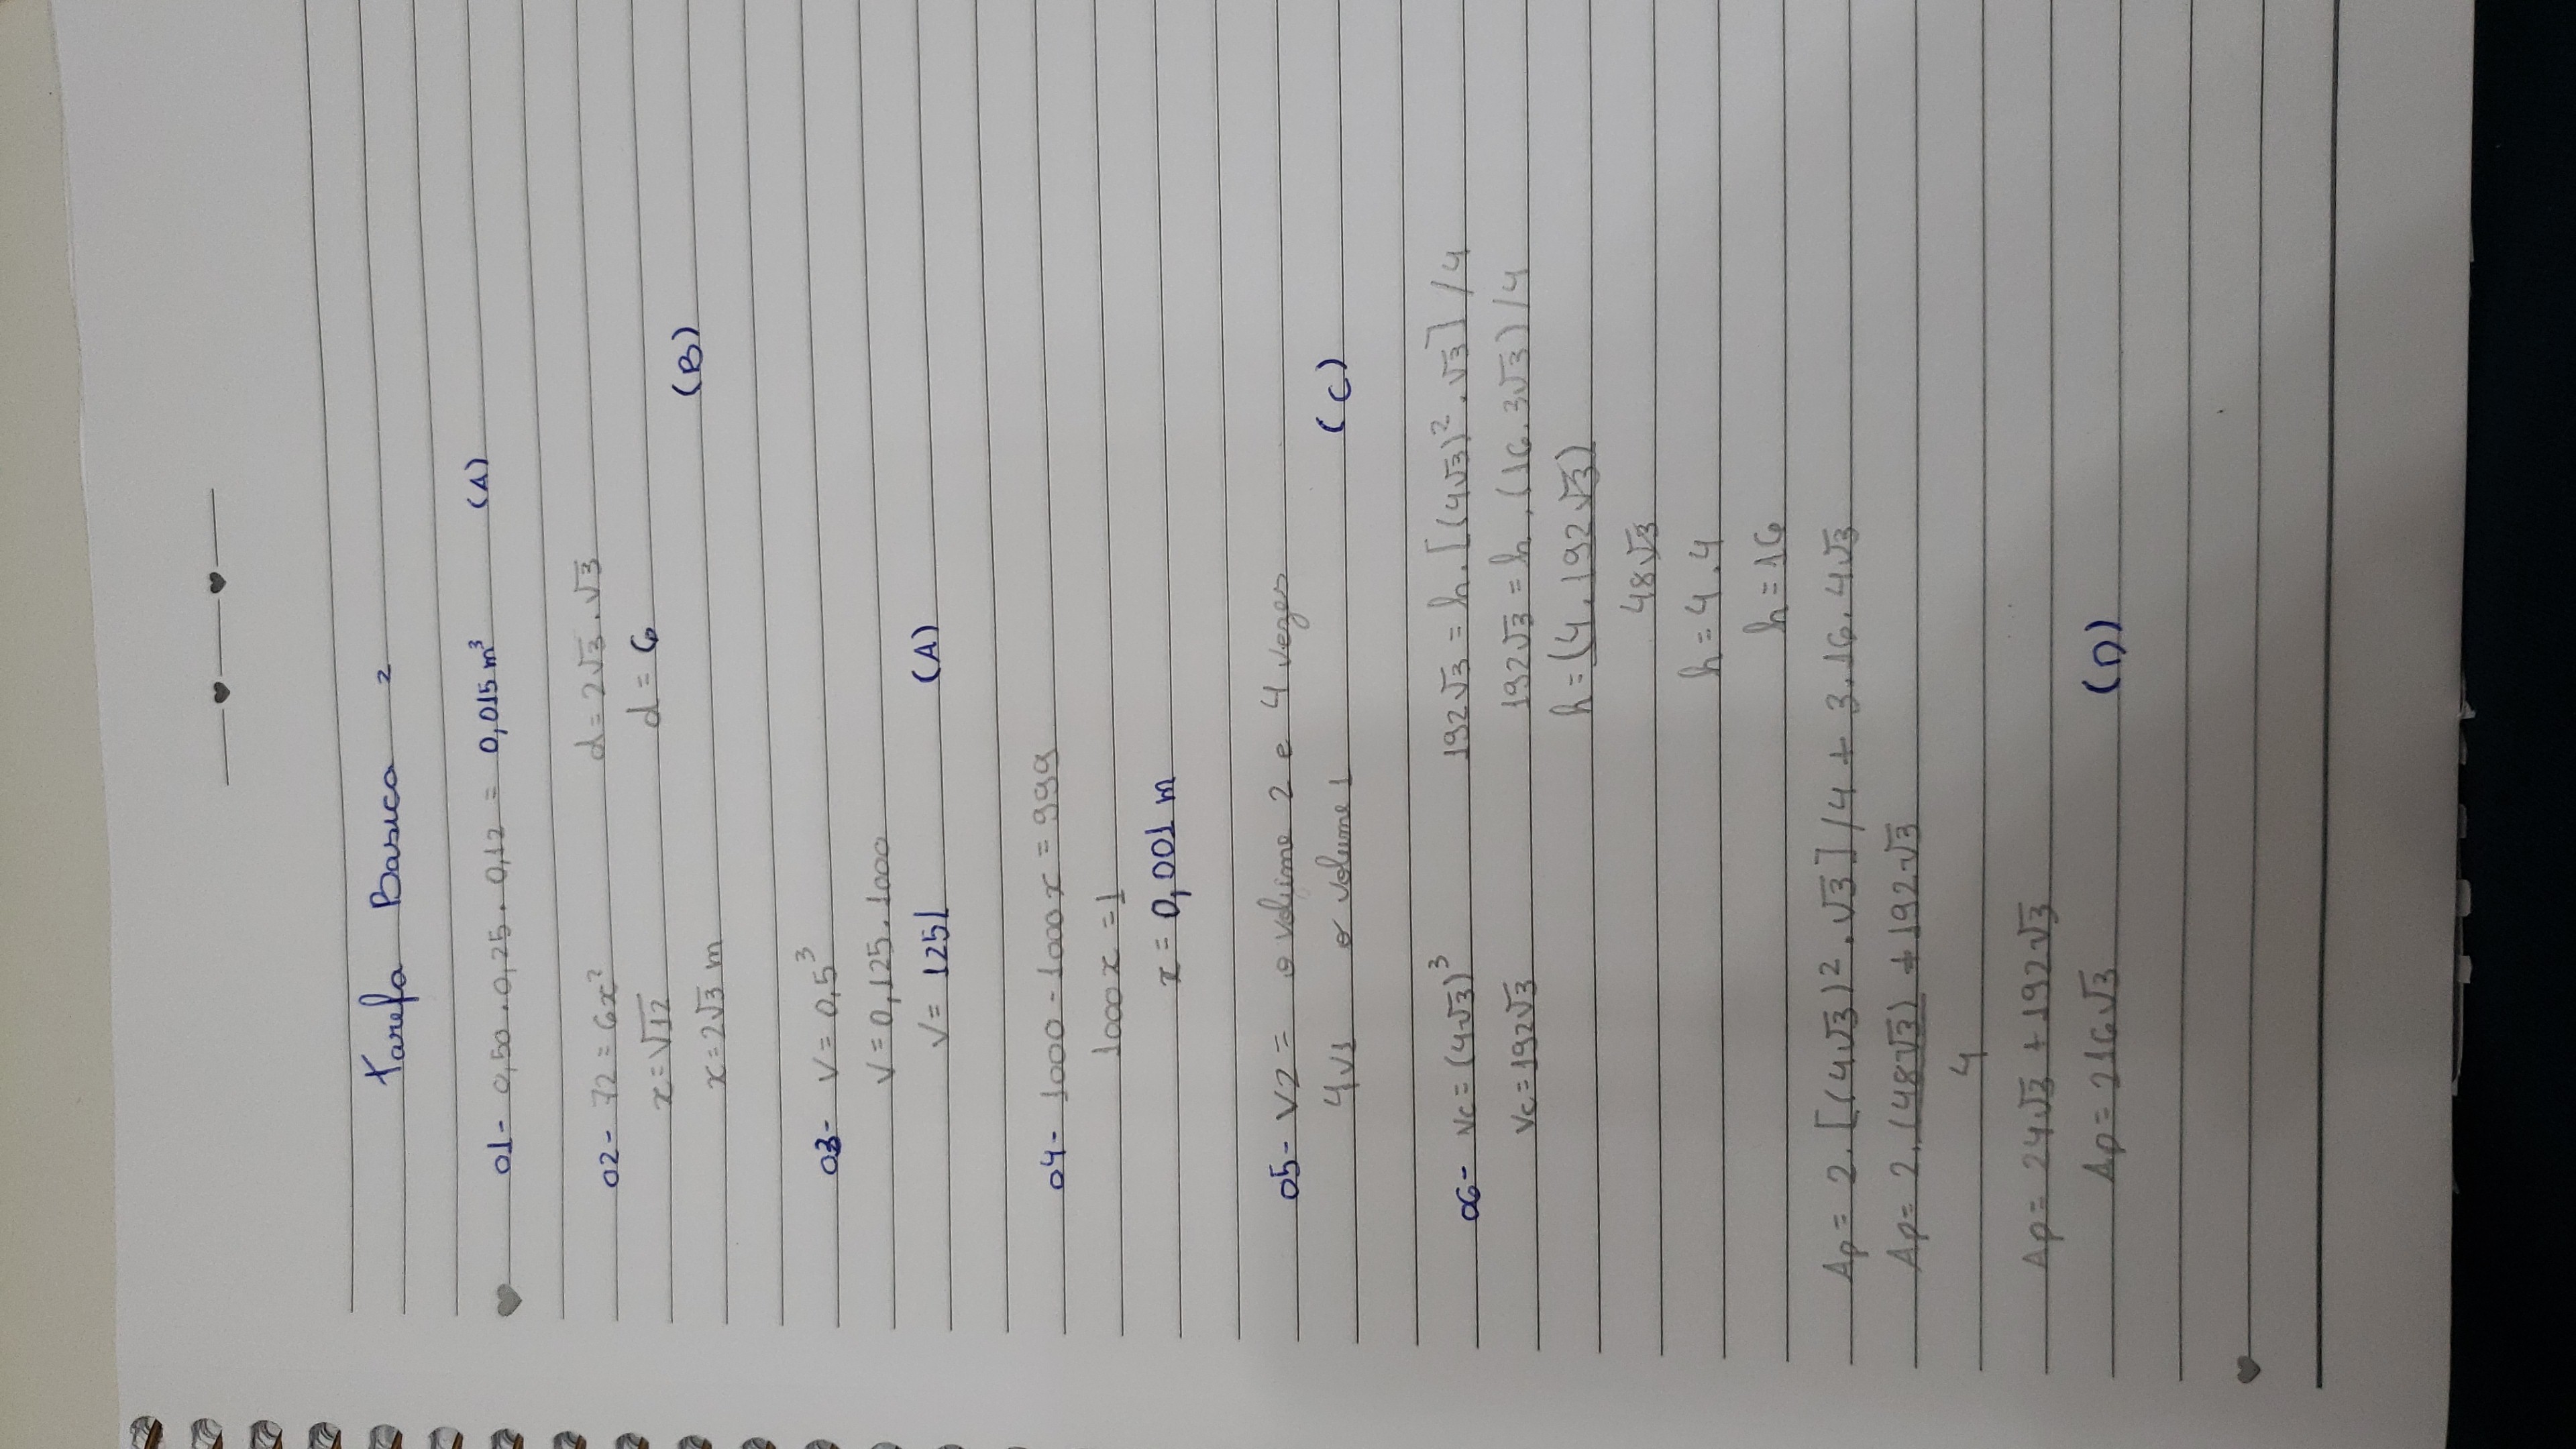 Tarefa Basica 2
01- 0,50 . 0,25 . 0,12 = 0,015 m³ (A)
02- 72 = 6x² d = 2√3 . √3
x = √12 d = 6
(B)
x = 2√3 m
03- V = 0,5³
V = 0,125 . 1000
V = 125l (A)
04- 1000 - 1000x = 999
1000x = 1
x = 0,001 m
05- V2 = o volume 2 e 4 vezes
4V1 o volume 1 (C)
06- Vc = (4√3)³ 192√3 = h . [(4√3)² . √3] / 4
Vc = 192√3 192√3 = h . (16 . 3√3) / 4
h = (4 . 192√3)
48√3
h = 4 . 4
h = 16
Ap = 2 . [(4√3)² . √3] / 4 + 3 . 16 . 4√3
Ap = 2 . (48√3) + 192√3
4
Ap = 24√3 + 192√3
Ap = 216√3 (D)